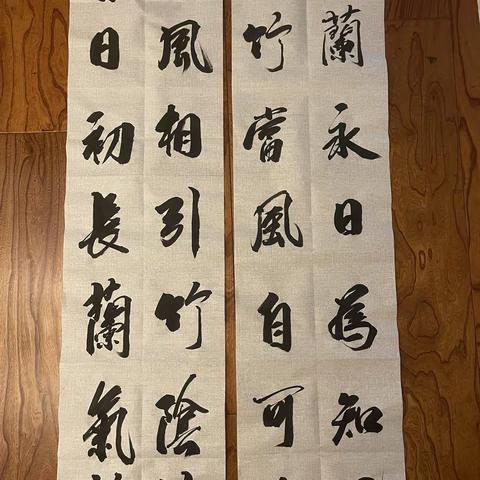 蘭永日為知
竹當風自可
風相引竹陰
日初長蘭氣